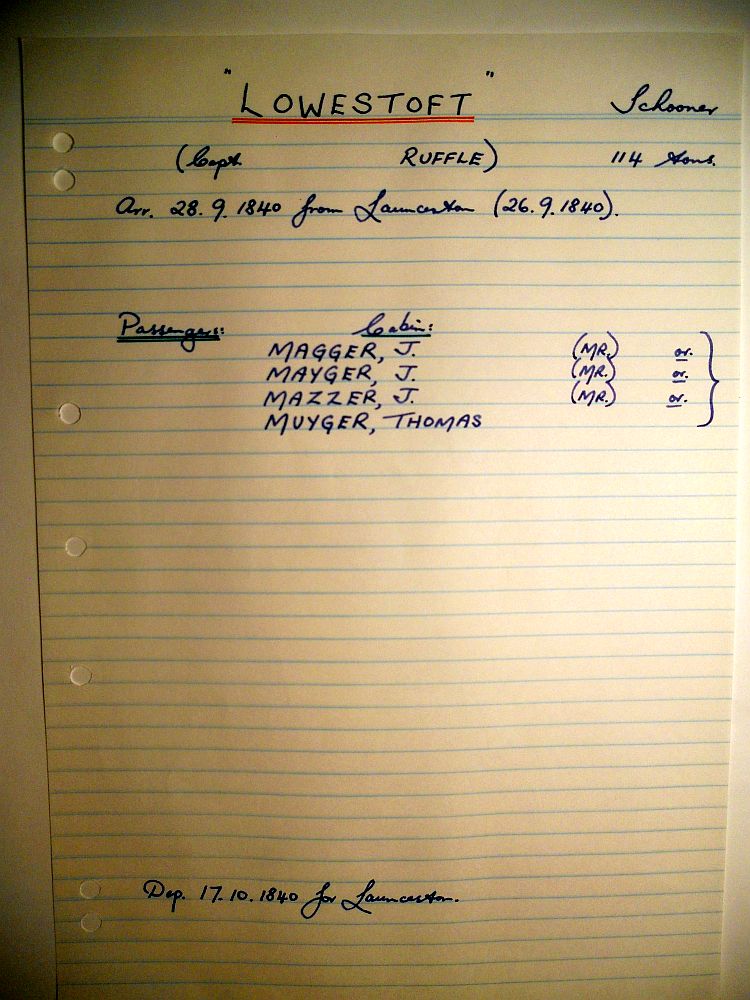 "LOWESTOFT" Schooner
(Capt. RUFFLE) 114 tons.
Arr. 28.9.1840 from Launceston (26.9.1840).
Passengers: Cabin:
MAGGER, J. (MR.) or.
MAYGER, J. (MR.) or.
MAZZER, J. (MR.) or.
MUYGER, THOMAS
Dep. 17.10.1840 for Launceston.